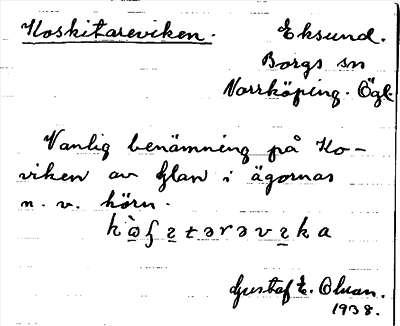 Koskitareviken.
Eksund.
Borgs sn
Norrköping. Ögl.
Vanlig benämning på Ko-
viken av Glan i ägornas
n. v. hörn.
Gustaf E. Olsson.
1938.